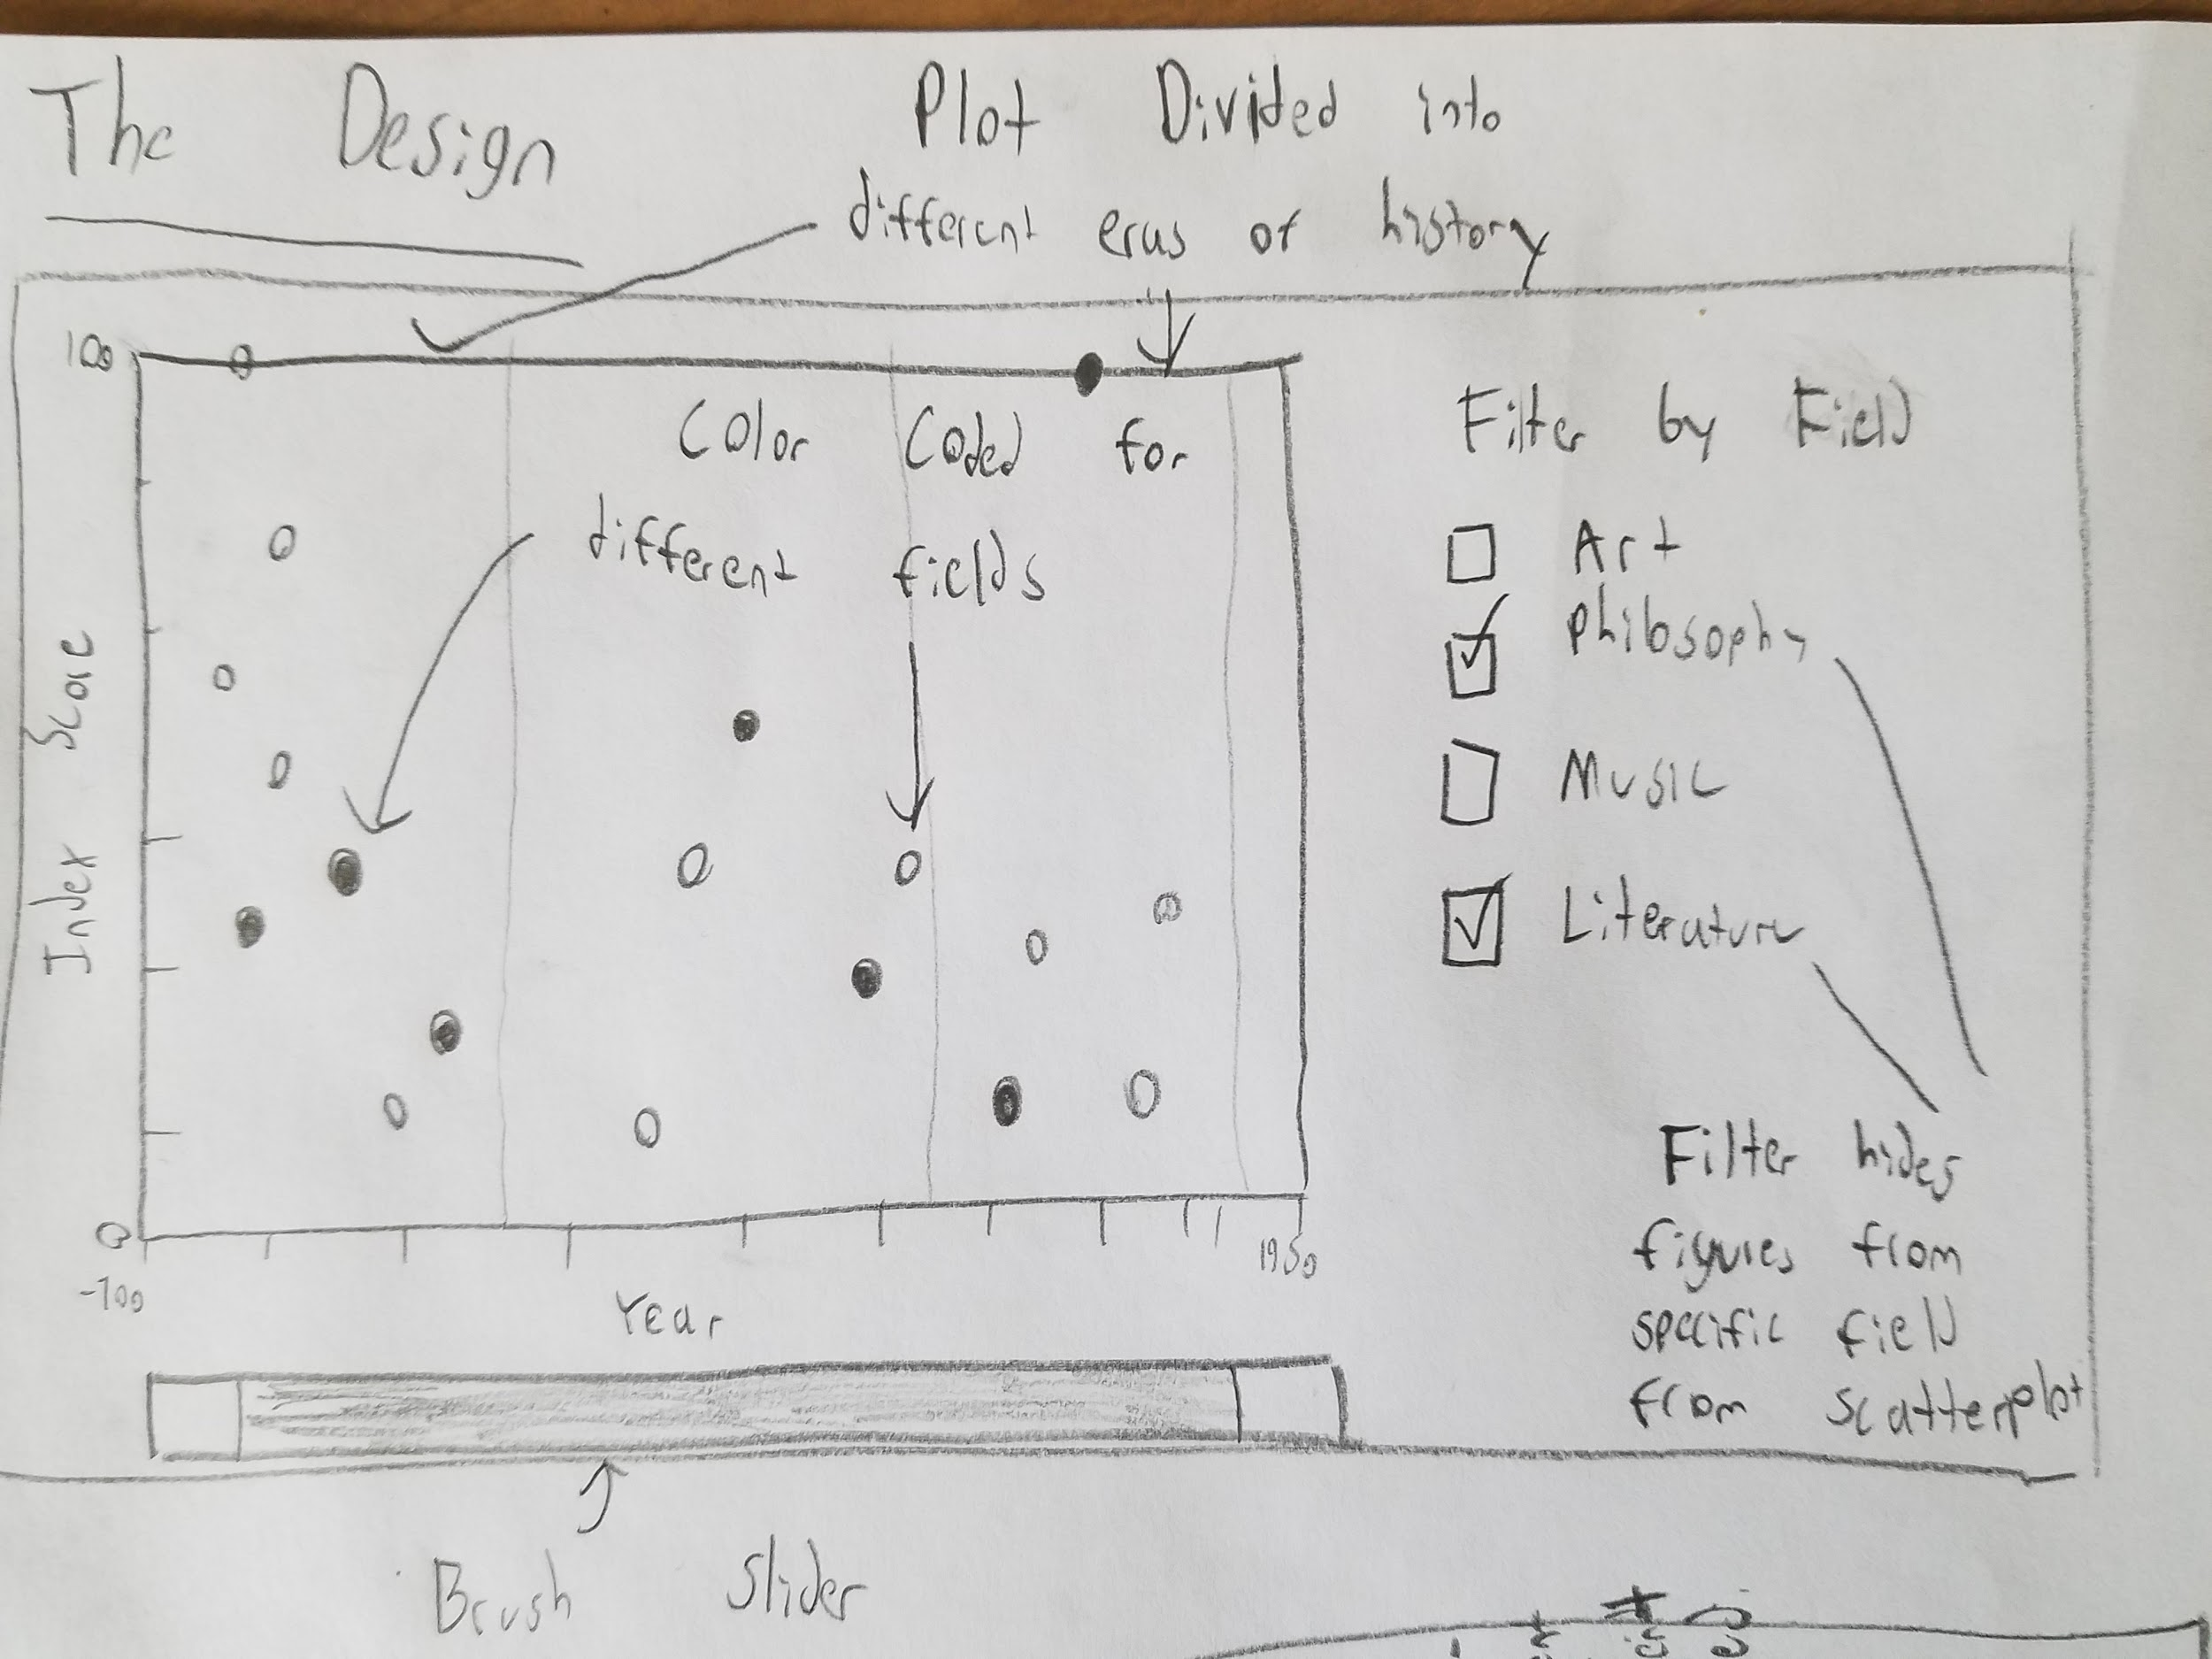 The Design
Plot Divided into
different eras of history
100
Color Coded for
different fields
Index Score
0
-700
1950
Year
Filter by Field
Art
Philosophy
Music
Literature
Filter hides
figures from
specific field
from scatterplot
Brush Slider